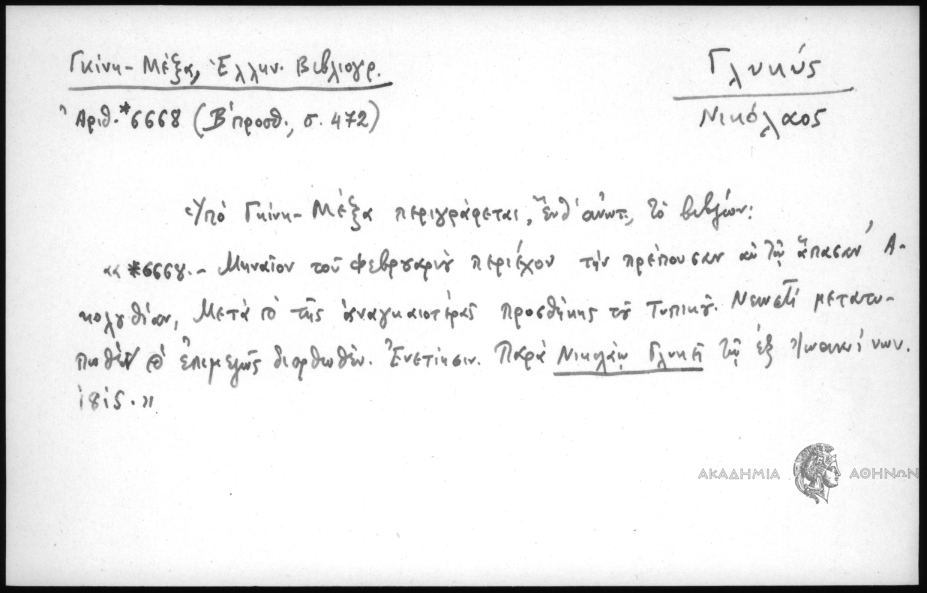 Γκίνη - Μέξα, Ἑλλην. Βιβλιογρ.
Ἀριθ. *6668 (Β΄ προσθ., σ. 472)
Γλυκύς
Νικόλαος
Ὑπό Γκίνη - Μέξα περιγράφεται, ἔνθ' ἀνωτ., τό βιβλίον:
«*6668.- Μηναῖον τοῦ Φεβρουαρίου περιέχον τήν πρέπουσαν αὐτῷ ἅπασαν Ἀ-
κολουθίαν, Μετά καί τῆς ἀναγκαιοτέρας προσθήκης τοῦ Τυπικοῦ. Νεωστί μετατυ-
πωθέν καί ἐπιμελῶς διορθωθέν. Ἐνετίησιν. Παρά Νικολάῳ Γλυκεῖ τῷ ἐξ Ἰωαννίνων.
»
ΑΚΑΔΗΜΙΑ ΑΘΗΝΩΝ